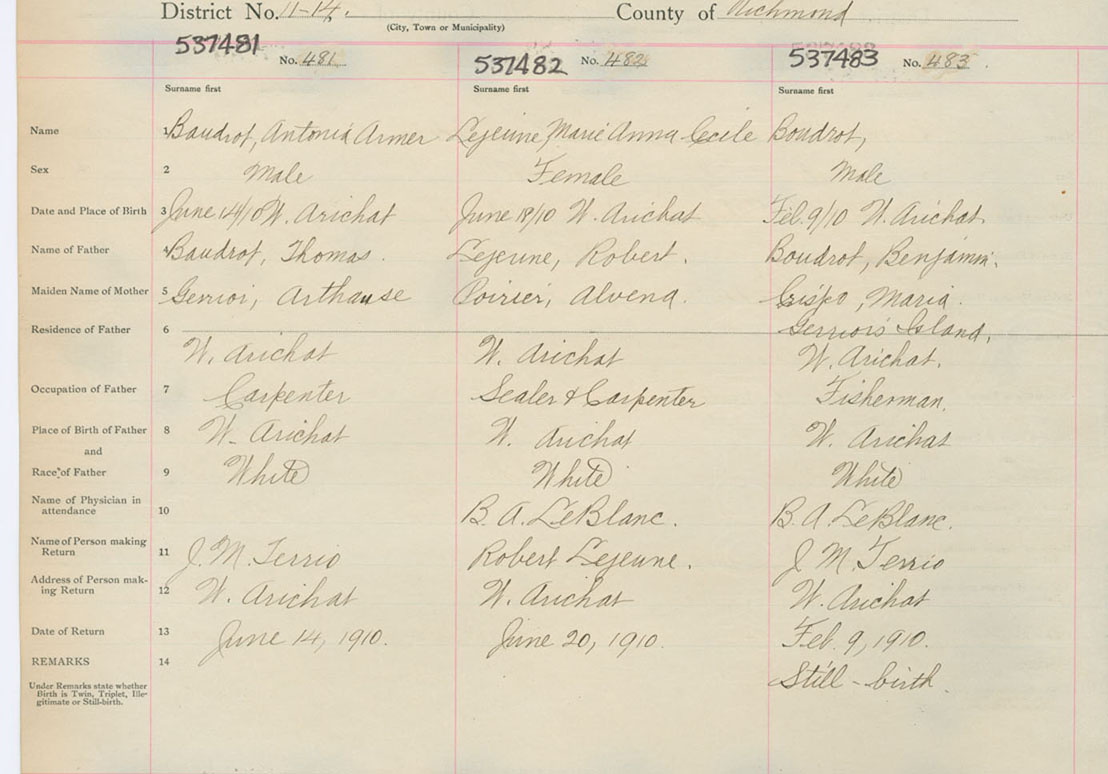 District No. 11-14. County of Richmond
(City, Town or Municipality)
537481 No. 481 537482 No. 482 537483 No. 483.
Surname first Surname first Surname first
Name 1 Boudrot, Antonia Armer Lejeune, Marie Anna Cecile Boudrot,
Sex 2 Male Female Male
Date and Place of Birth 3 June 14/10 W. Arichat June 18/10 W. Arichat Feb. 9/10 W. Arichat.
Name of Father 4 Boudrot, Thomas. Lejeune, Robert. Boudrot, Benjamin.
Maiden Name of Mother 5 Gerrior, Arthause Poirier, Alvena. Crispo, Maria.
Residence of Father 6 Gerrior's Island,
W. Arichat W. Arichat W. Arichat.
Occupation of Father 7 Carpenter Sealer & Carpenter Fisherman.
Place of Birth of Father 8 W. Arichat W. Arichat W. Arichat
and
Race of Father 9 White White White
Name of Physician in
attendance 10 B. A. LeBlanc. B. A. LeBlanc.
Name of Person making
Return 11 J. M. Terrio Robert Lejeune. J. M. Terrio
Address of Person mak-
ing Return 12 W. Arichat W. Arichat W. Arichat
Date of Return 13 June 14, 1910. June 20, 1910. Feb. 9, 1910.
REMARKS 14
Still-birth.
Under Remarks state whether
Birth is Twin, Triplet, Ille-
gitimate or Still-birth.